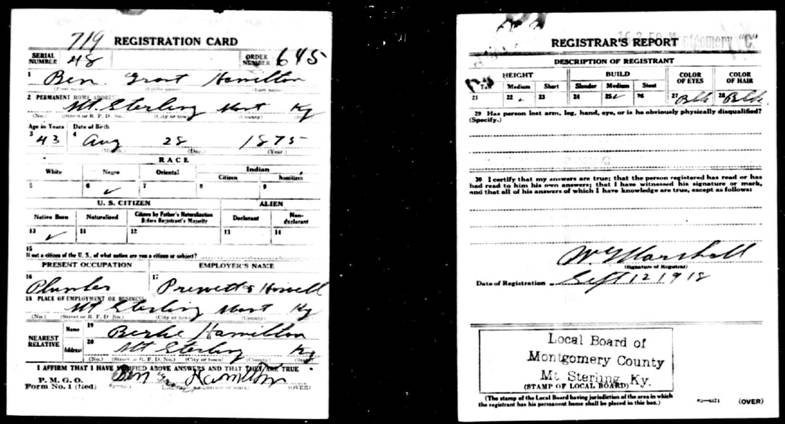 719
REGISTRATION CARD
SERIAL NUMBER 48
ORDER NUMBER 645
1 Ben Grant Hamilton
2 PERMANENT HOME ADDRESS:
Mt. Sterling Mont Ky
(No.) (Street or R. F. D. No.) (City or town) (County) (State)
Age in Years Date of Birth
3 43 4 Aug 28 1875
(Month.) (Day.) (Year.)
RACE
White Negro Oriental Indian
Citizen Noncitizen
5 6 ✓ 7 8 9
U. S. CITIZEN ALIEN
Native Born Naturalized Citizen by Father's Naturalization Before Registrant's Majority Declarant Non-declarant
10 ✓ 11 12 13 14
15
If not a citizen of the U. S., of what nation are you a citizen or subject?
PRESENT OCCUPATION EMPLOYER'S NAME
16 17
Prewitt & Howell
18 PLACE OF EMPLOYMENT OR BUSINESS:
Mt Sterling Mont Ky
(No.) (Street or R. F. D. No.) (City or town) (County) (State)
NEAREST RELATIVE
Name 19 Hamilton
Address 20 Mt Sterling Ky
(No.) (Street or R. F. D. No.) (City or town) (County) (State)
I AFFIRM THAT I HAVE VERIFIED ABOVE ANSWERS AND THAT THEY ARE TRUE
P. M. G. O.
Form No. 1 (Red) Ben Hamilton
(OVER)
Montgomery "C"
REGISTRAR'S REPORT
DESCRIPTION OF REGISTRANT
HEIGHT BUILD COLOR OF EYES COLOR OF HAIR
Tall Medium Short Slender Medium Stout
21 22 ✓ 23 24 25 ✓ 26 27 Blk 28 Blk
29 Has person lost arm, leg, hand, eye, or is he obviously physically disqualified?
(Specify.)
30 I certify that my answers are true; that the person registered has read or has
had read to him his own answers; that I have witnessed his signature or mark,
and that all of his answers of which I have knowledge are true, except as follows:
Marshall
(Signature of Registrar)
Date of Registration Sept 12 1918
Local Board of
Montgomery County
Mt Sterling, Ky.
(STAMP OF LOCAL BOARD)
(The stamp of the Local Board having jurisdiction of the area in which
the registrant has his permanent home shall be placed in this box.)
(OVER)